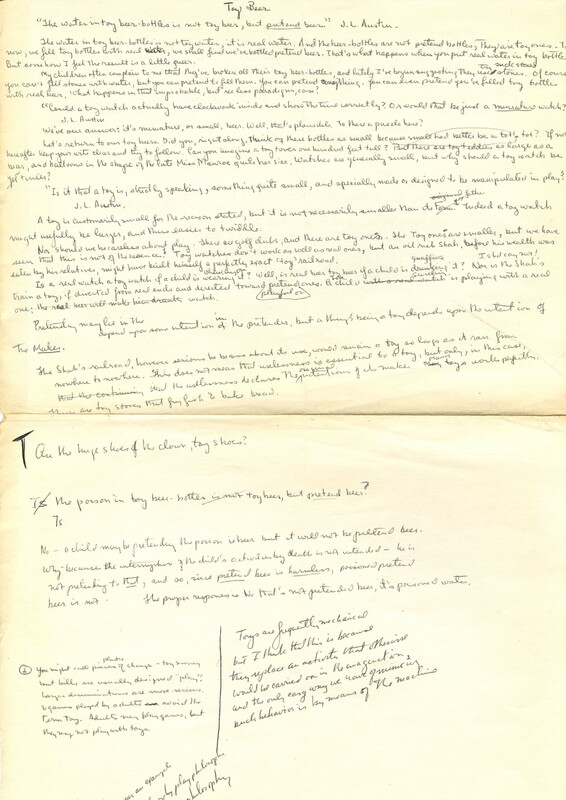 Toy Beer
"The water in toy beer-bottles is not toy beer, but pretend beer." J. L. Austin.
The water in toy beer-bottles is not toy water, it is real water. And the beer-bottles are not pretend bottles. They are toy ones.
now, we fill toy bottles with real water, we shall find we've bottled pretend beer. That's what happens when you put real water in toy bottles.
But somehow I feel the result is a little queer.
My children often complain to me that they've broken all their toy beer-bottles, and lately I've begun suggesting they use toy stones. Of course
you can't fill stones with water, but you can pretend to fill them. You can pretend anything. You can even pretend you've filled toy bottles
with real beer. What happens in that improbable, but no less paradigm, case?
"Could a toy watch actually have clockwork inside and show the time correctly? Or would that be just a miniature watch?"
J. L. Austin
We've our answer: it's miniature, or small, beer. Well, that's plausible. Is there a puzzle here?
Let's return to our toy beers. Did you, right along, think of these bottles as small because small had better be a tot's tot? If not
hereafter keep your wits clear and try to follow. Can you imagine a toy over one hundred feet tall? And there are toy teddies as large as a
bear, and balloons in the shape of the late Miss Monroe quite her size. Watches are generally small, but why should a toy watch be
yet tinier?
"Is it that a toy is, strictly speaking, something quite small, and specially made or designed to be manipulated in play?"
J. L. Austin.
A toy is customarily small for the reason stated, but it is not necessarily smaller than the original of the Indeed a toy watch
might usefully be larger, and thus easier to twiddle.
Nor should we be careless about play. There are golf clubs, and there are toy ones. The toy ones are smaller, but we have
seen that this is not of the essence. Toy watches don't work as well as real ones, but an oil rich Shah, before his wealth was
eaten by his relatives, might have built himself a perfectly exact toy railroad.
Is a real watch a toy watch if a child is wearing it? Well, is real beer toy beer if a child is drinking it? Nor is the Shah's
train a toy, if diverted from real ends and devoted toward pretend ones. A child is playing with a real
one; the real beer will make him drunk
Pretending may lie in the
depend upon some intention in of the pretender, but a thing's being a toy depends upon the intention of
The Maker.
The Shah's railroad, however serious he was about its use, would remain a toy so long as it ran from
nowhere to nowhere. This does not mean that uselessness is essential to a toy, but only, in this case,
that the uselessness declares the original intentions of its maker. Many toys work perfectly.
There are toy stoves that fry fish & bake bread.
Are the huge shoes of the clown, toy shoes?
Is the poison in toy beer-bottles is not toy beer, but pretend beer?
Is
No – a child may be pretending the poison is beer but it will not be pretend beer.
Why – because the interruption of the child's activities by death is not intended – he is
not pretending to that, and so, since pretend beer is harmless, poisoned pretend
beer is not. The proper response is No that's not pretend beer, it's poisoned water.
You might call plastic pieces of change – toy money
but bills are usually designed "play";
larger denominations are more serious.
games played by adults avoid the
term toy. Adults may play games, but
they may not play with toys.
Toys are frequently mechanical
but I think that this is because
they replace an activity that otherwise
would be carried on in the imagination,
and the only easy way we have of mimicing
such behavior is by means of the machine
an example
play philosophy
philosophy